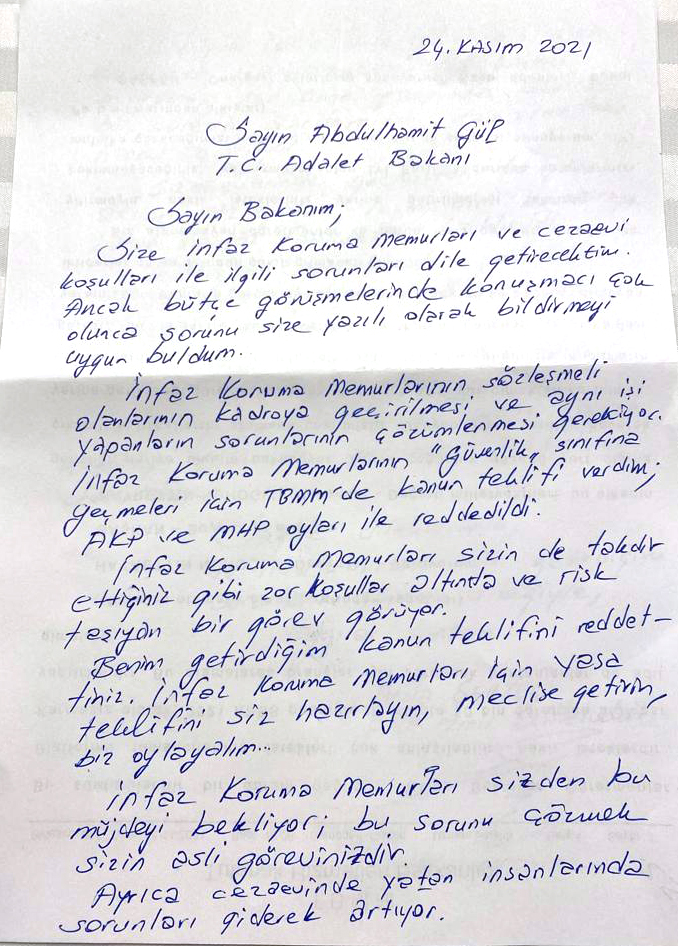 24. KASIM 2021
Sayın Abdulhamit GÜL
T.C. Adalet Bakanı
Sayın Bakanım;
Size infaz koruma memurları ve cezaevi
koşulları ile ilgili sorunları dile getirecektim.
Ancak bütçe görüşmelerinde konuşmacı çok
olunca sorunu size yazılı olarak bildirmeyi
uygun buldum.
İnfaz Koruma Memurlarının sözleşmeli
olanlarının kadroya geçirilmesi ve aynı işi
yapanların sorunlarının çözümlenmesi gerekiyor.
İnfaz Koruma Memurlarının "güvenlik" sınıfına
geçmeleri için TBMM'de kanun teklifi verdim;
AKP ve MHP oyları ile reddedildi.
İnfaz Koruma Memurları sizin de takdir
ettiğiniz gibi zor koşullar altında ve risk
taşıyan bir görev görüyor.
Benim getirdiğim kanun teklifini reddet-
tiniz, infaz koruma memurları için yasa
teklifini siz hazırlayın, meclise getirin,
biz oylayalım...
İnfaz Koruma Memurları sizden bu
müjdeyi bekliyor; bu sorunu çözmek
sizin asli görevinizdir
Ayrıca cezaevinde yatan insanlarında
sorunları giderek artıyor.